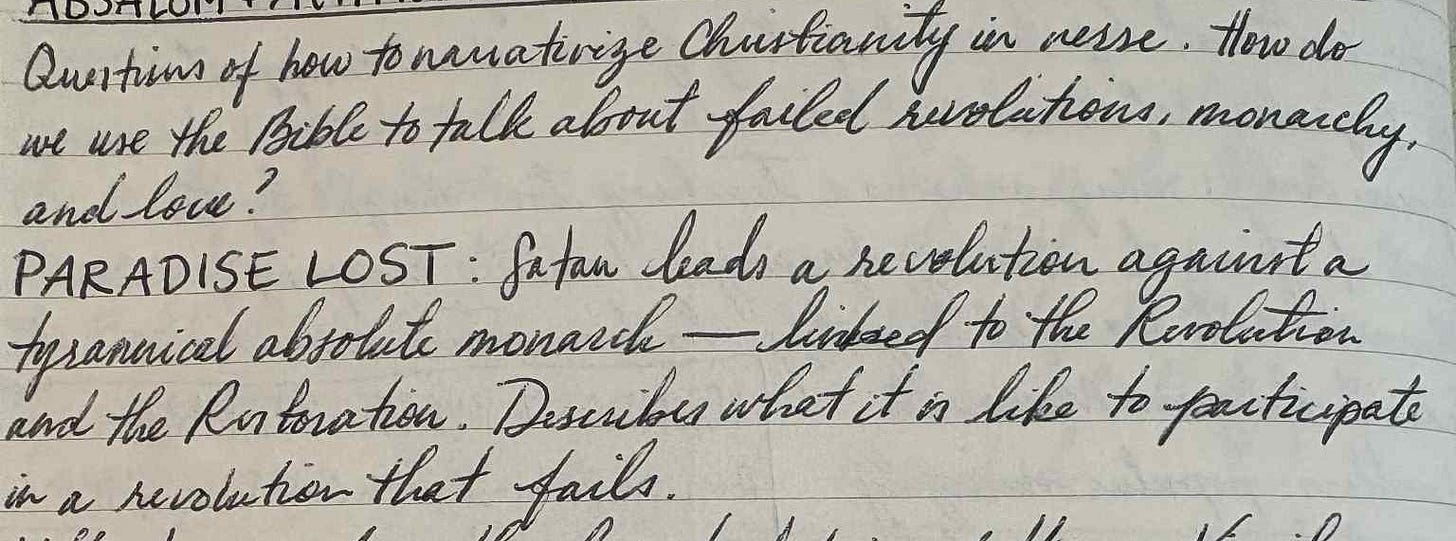 ABSALOM + A
Questions of how to narrativize Christianity in verse. How do
we use the Bible to talk about failed revolutions, monarchy,
and love?
PARADISE LOST: Satan leads a revolution against a
tyrannical absolute monarch — linked to the Revolution
and the Restoration. Describes what it is like to participate
in a revolution that fails.